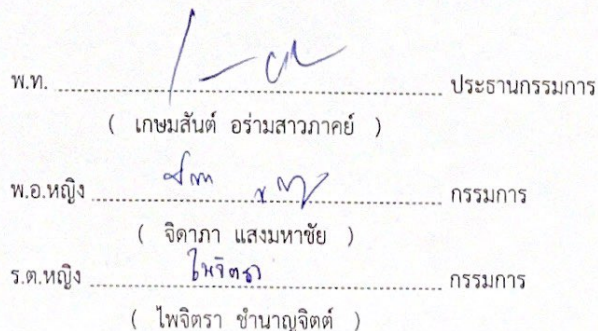 พ.ท. ........................................ ประธานกรรมการ
( เกษมสันต์ อร่ามสาวภาคย์ )
พ.อ.หญิง ........................................ กรรมการ
( จิดาภา แสงมหาชัย )
ร.ต.หญิง ไพจิตรา กรรมการ
( ไพจิตรา ชำนาญจิตต์ )